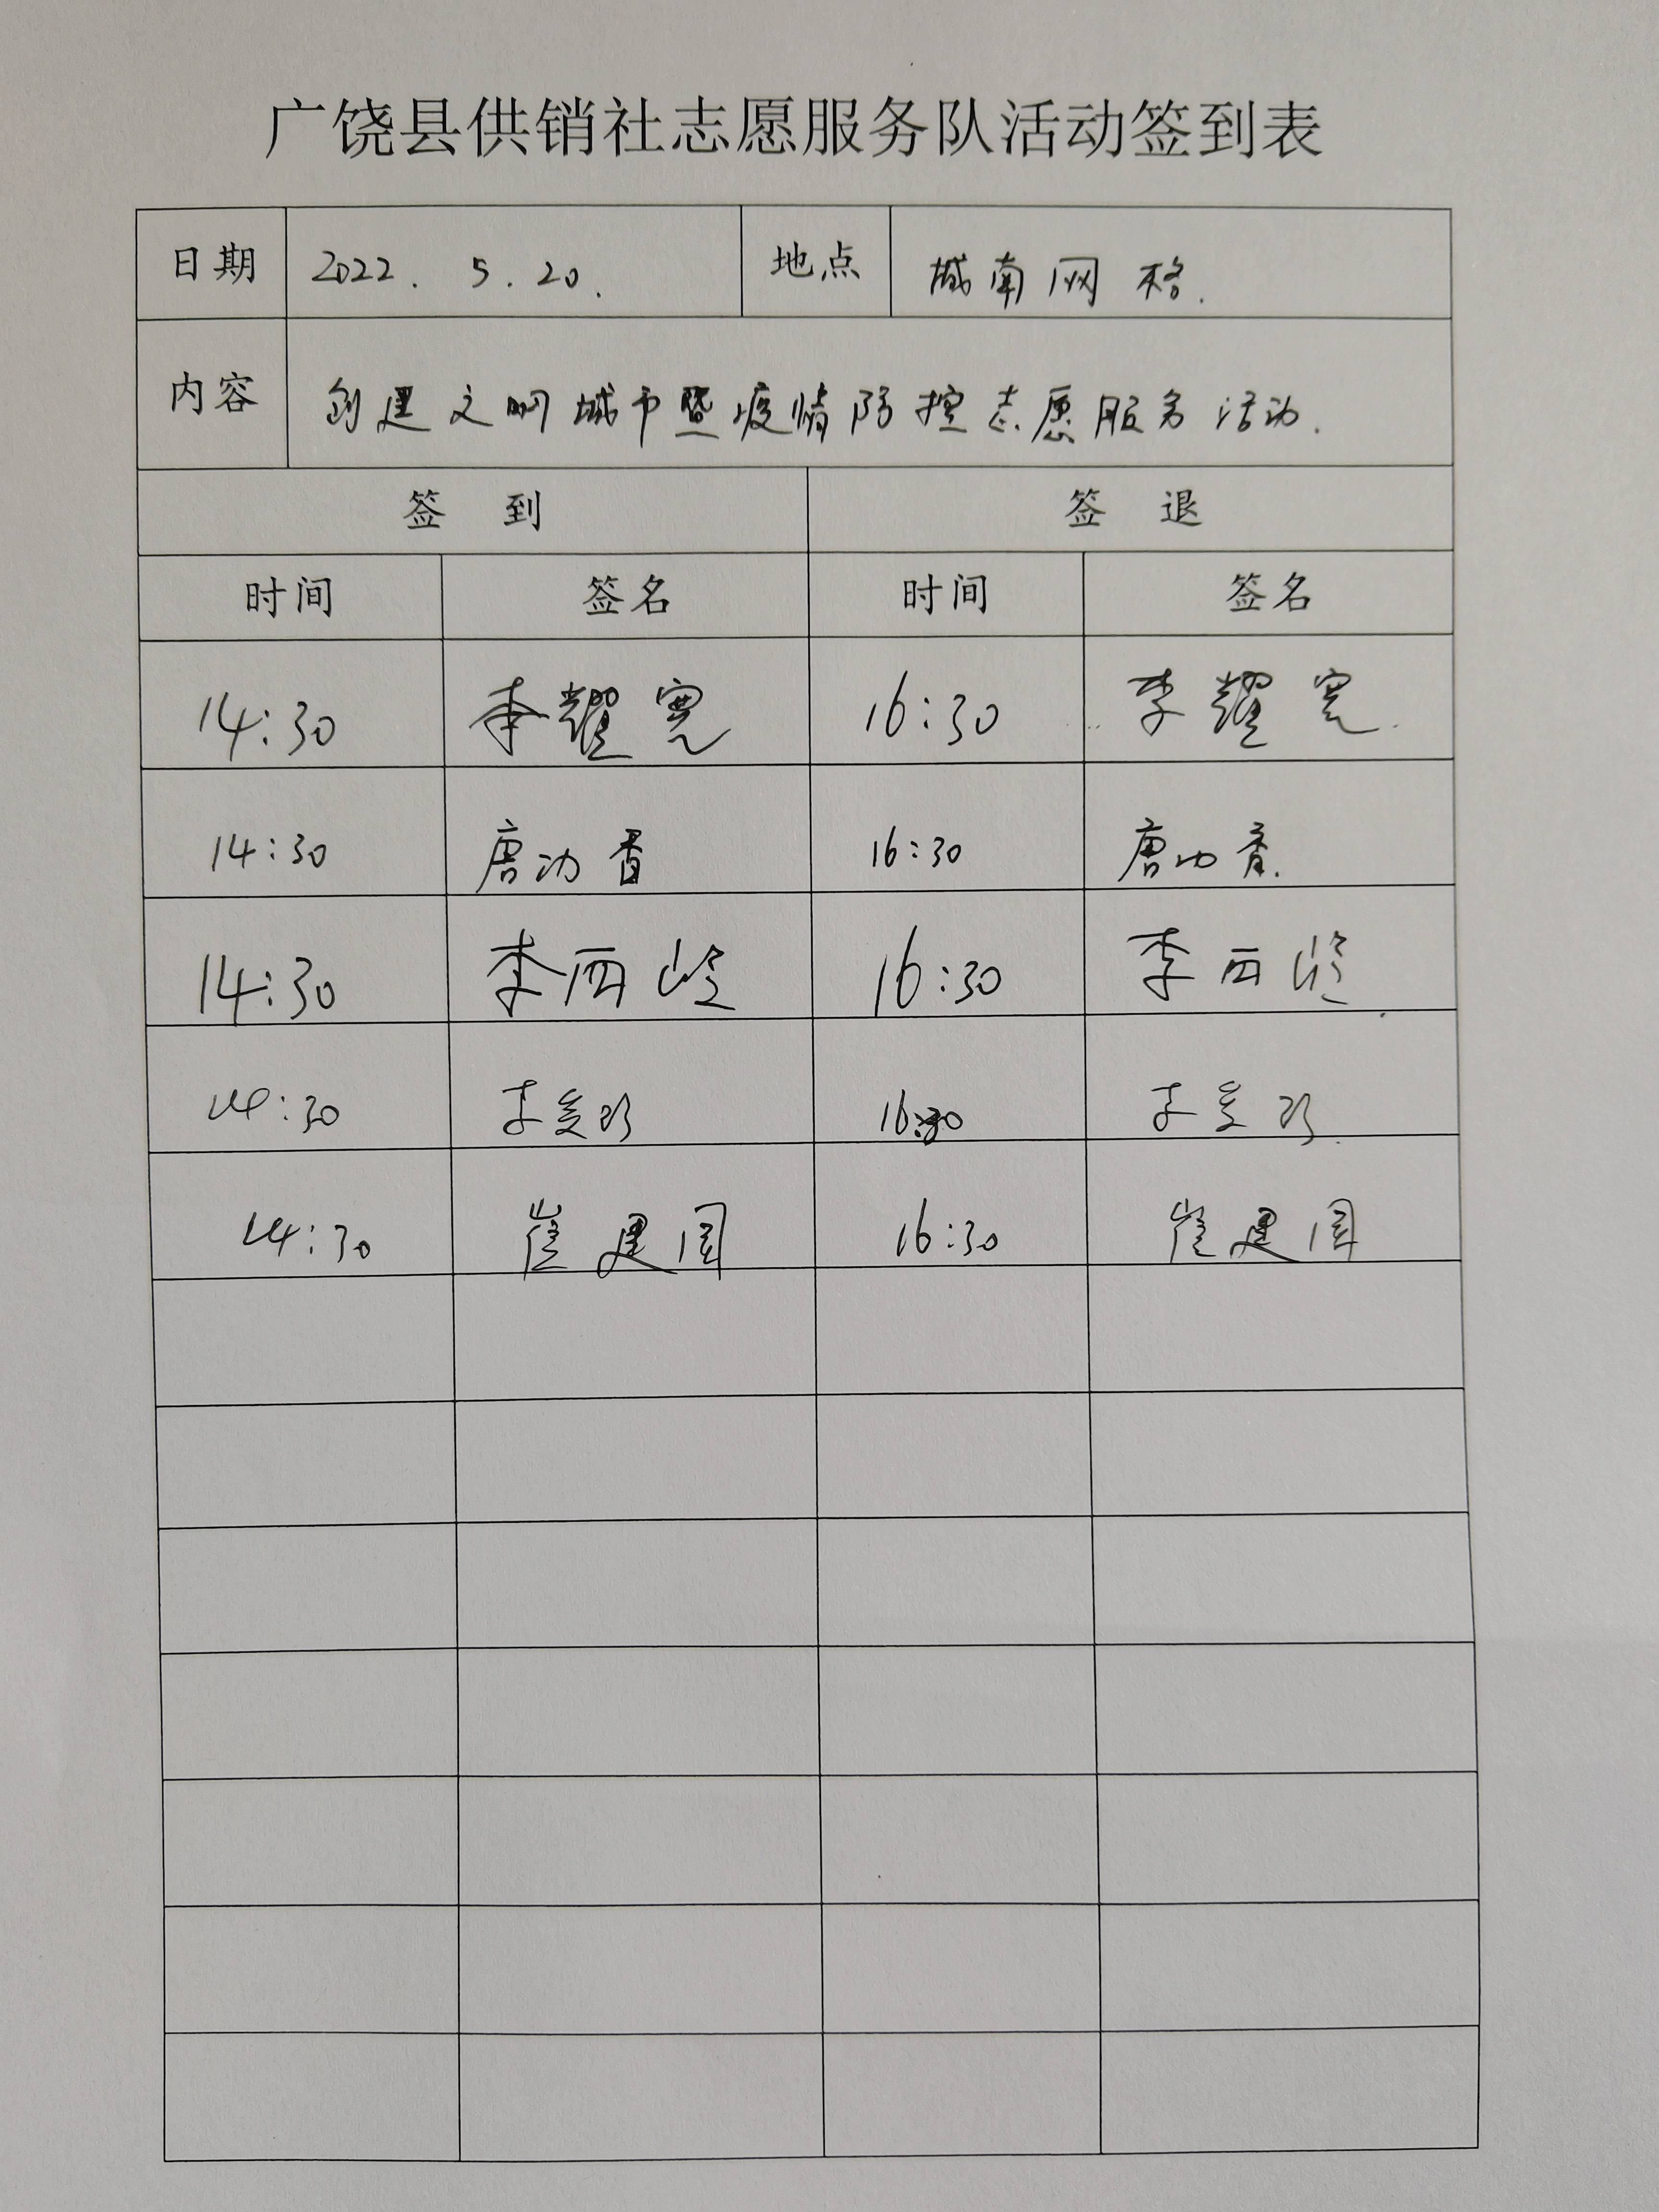 广饶县供销社志愿服务队活动签到表
日期 2022. 5. 20. 地点 城南网格.
内容 创建文明城市暨疫情防控志愿服务活动.
签到 签退
时间 签名 时间 签名
14:30 李耀宽 16:30 李耀宽
14:30 唐功香 16:30 唐功香
14:30 李西 16:30 李西
14:30 李 16:30 李
14:30 崔建国 16:30 崔建国